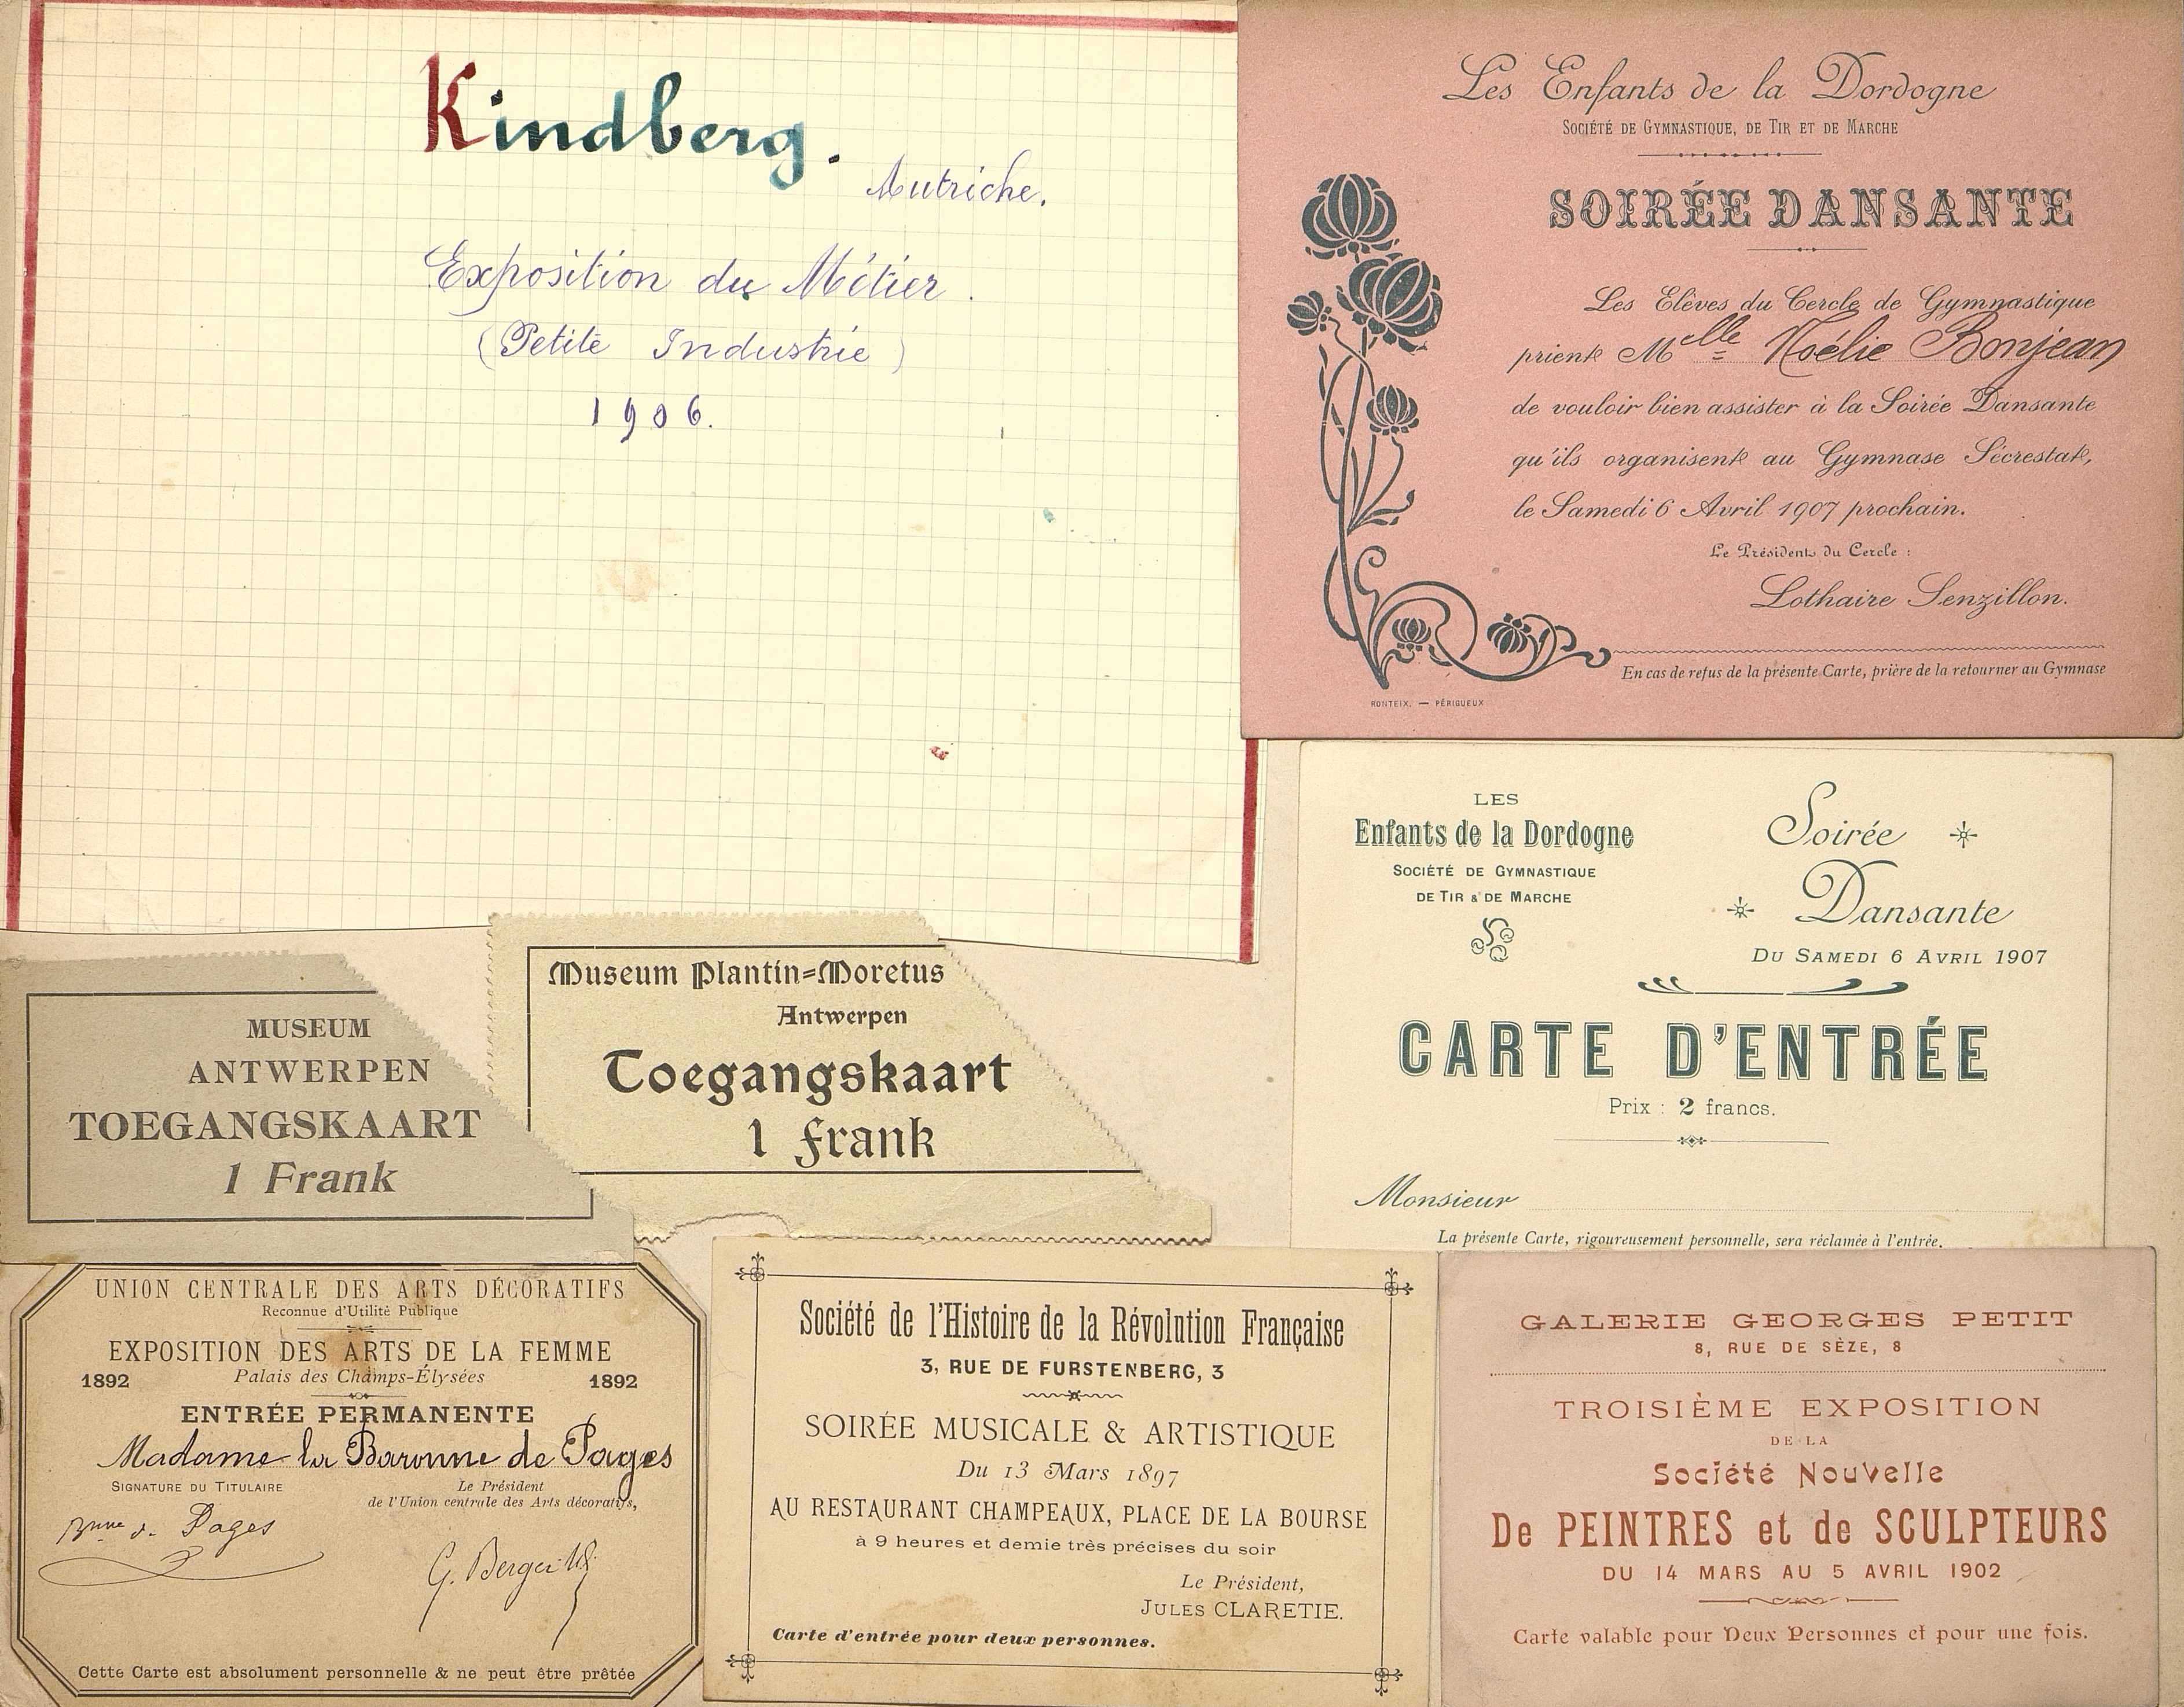 Kindberg.
Autriche.
Exposition du Métier.
(Petite Industrie)
1906.
Les Enfants de la Dordogne
SOCIÉTÉ DE GYMNASTIQUE, DE TIR ET DE MARCHE
SOIRÉE DANSANTE
Les Elèves du Cercle de Gymnastique
prient Melle Noélie Bonjean
de vouloir bien assister à la Soirée Dansante
qu'ils organisent au Gymnase Sécrestat,
le Samedi 6 Avril 1907 prochain.
Le Président du Cercle :
Lothaire Senzillon.
En cas de refus de la présente Carte, prière de la retourner au Gymnase
RONTEIX. — PÉRIGUEUX
LES
Enfants de la Dordogne
SOCIÉTÉ DE GYMNASTIQUE
DE TIR & DE MARCHE
Soirée
Dansante
DU SAMEDI 6 AVRIL 1907
CARTE D'ENTRÉE
Prix : 2 francs.
Monsieur
La présente Carte, rigoureusement personnelle, sera réclamée à l'entrée.
MUSEUM
ANTWERPEN
TOEGANGSKAART
1 Frank
Museum Plantin=Moretus
Antwerpen
Toegangskaart
1 Frank
UNION CENTRALE DES ARTS DÉCORATIFS
Reconnue d'Utilité Publique
EXPOSITION DES ARTS DE LA FEMME
1892 Palais des Champs-Élysées 1892
ENTRÉE PERMANENTE
Madame la Baronne de Pages
SIGNATURE DU TITULAIRE
Le Président
de l'Union centrale des Arts décoratifs,
Bnne de Pages
G. Berger
Cette Carte est absolument personnelle & ne peut être prêtée
Société de l'Histoire de la Révolution Française
3, RUE DE FURSTENBERG, 3
SOIRÉE MUSICALE & ARTISTIQUE
Du 13 Mars 1897
AU RESTAURANT CHAMPEAUX, PLACE DE LA BOURSE
à 9 heures et demie très précises du soir
Le Président,
JULES CLARETIE.
Carte d'entrée pour deux personnes.
GALERIE GEORGES PETIT
8, RUE DE SÈZE, 8
TROISIÈME EXPOSITION
DE LA
Société Nouvelle
De PEINTRES et de SCULPTEURS
DU 14 MARS AU 5 AVRIL 1902
Carte valable pour Deux Personnes et pour une fois.